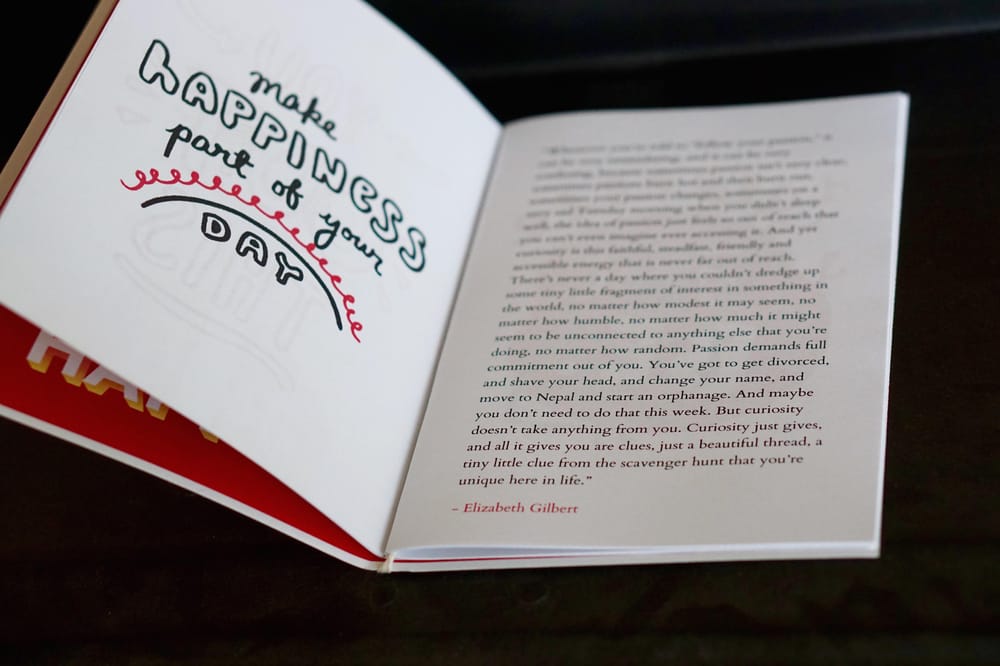 make
HAPPINESS
part of your
DAY
HAP
"Whenever you're told to "follow your passion," it
can be very intimidating, and it can be very
confusing, because sometimes passion isn't very clear,
sometimes passions burn hot and then burn out,
your passion changes, sometimes on a
very sad Tuesday morning when you didn't sleep
well, the idea of passion just feels so out of reach that
you can't even imagine ever accessing it. And yet
curiosity is this faithful, steadfast, friendly and
accessible energy that is never far out of reach.
There's never a day where you couldn't dredge up
some tiny little fragment of interest in something in
the world, no matter how modest it may seem, no
matter how humble, no matter how much it might
seem to be unconnected to anything else that you're
doing, no matter how random. Passion demands full
commitment out of you. You've got to get divorced,
and shave your head, and change your name, and
move to Nepal and start an orphanage. And maybe
you don't need to do that this week. But curiosity
doesn't take anything from you. Curiosity just gives,
and all it gives you are clues, just a beautiful thread, a
tiny little clue from the scavenger hunt that you're
unique here in life."
– Elizabeth Gilbert